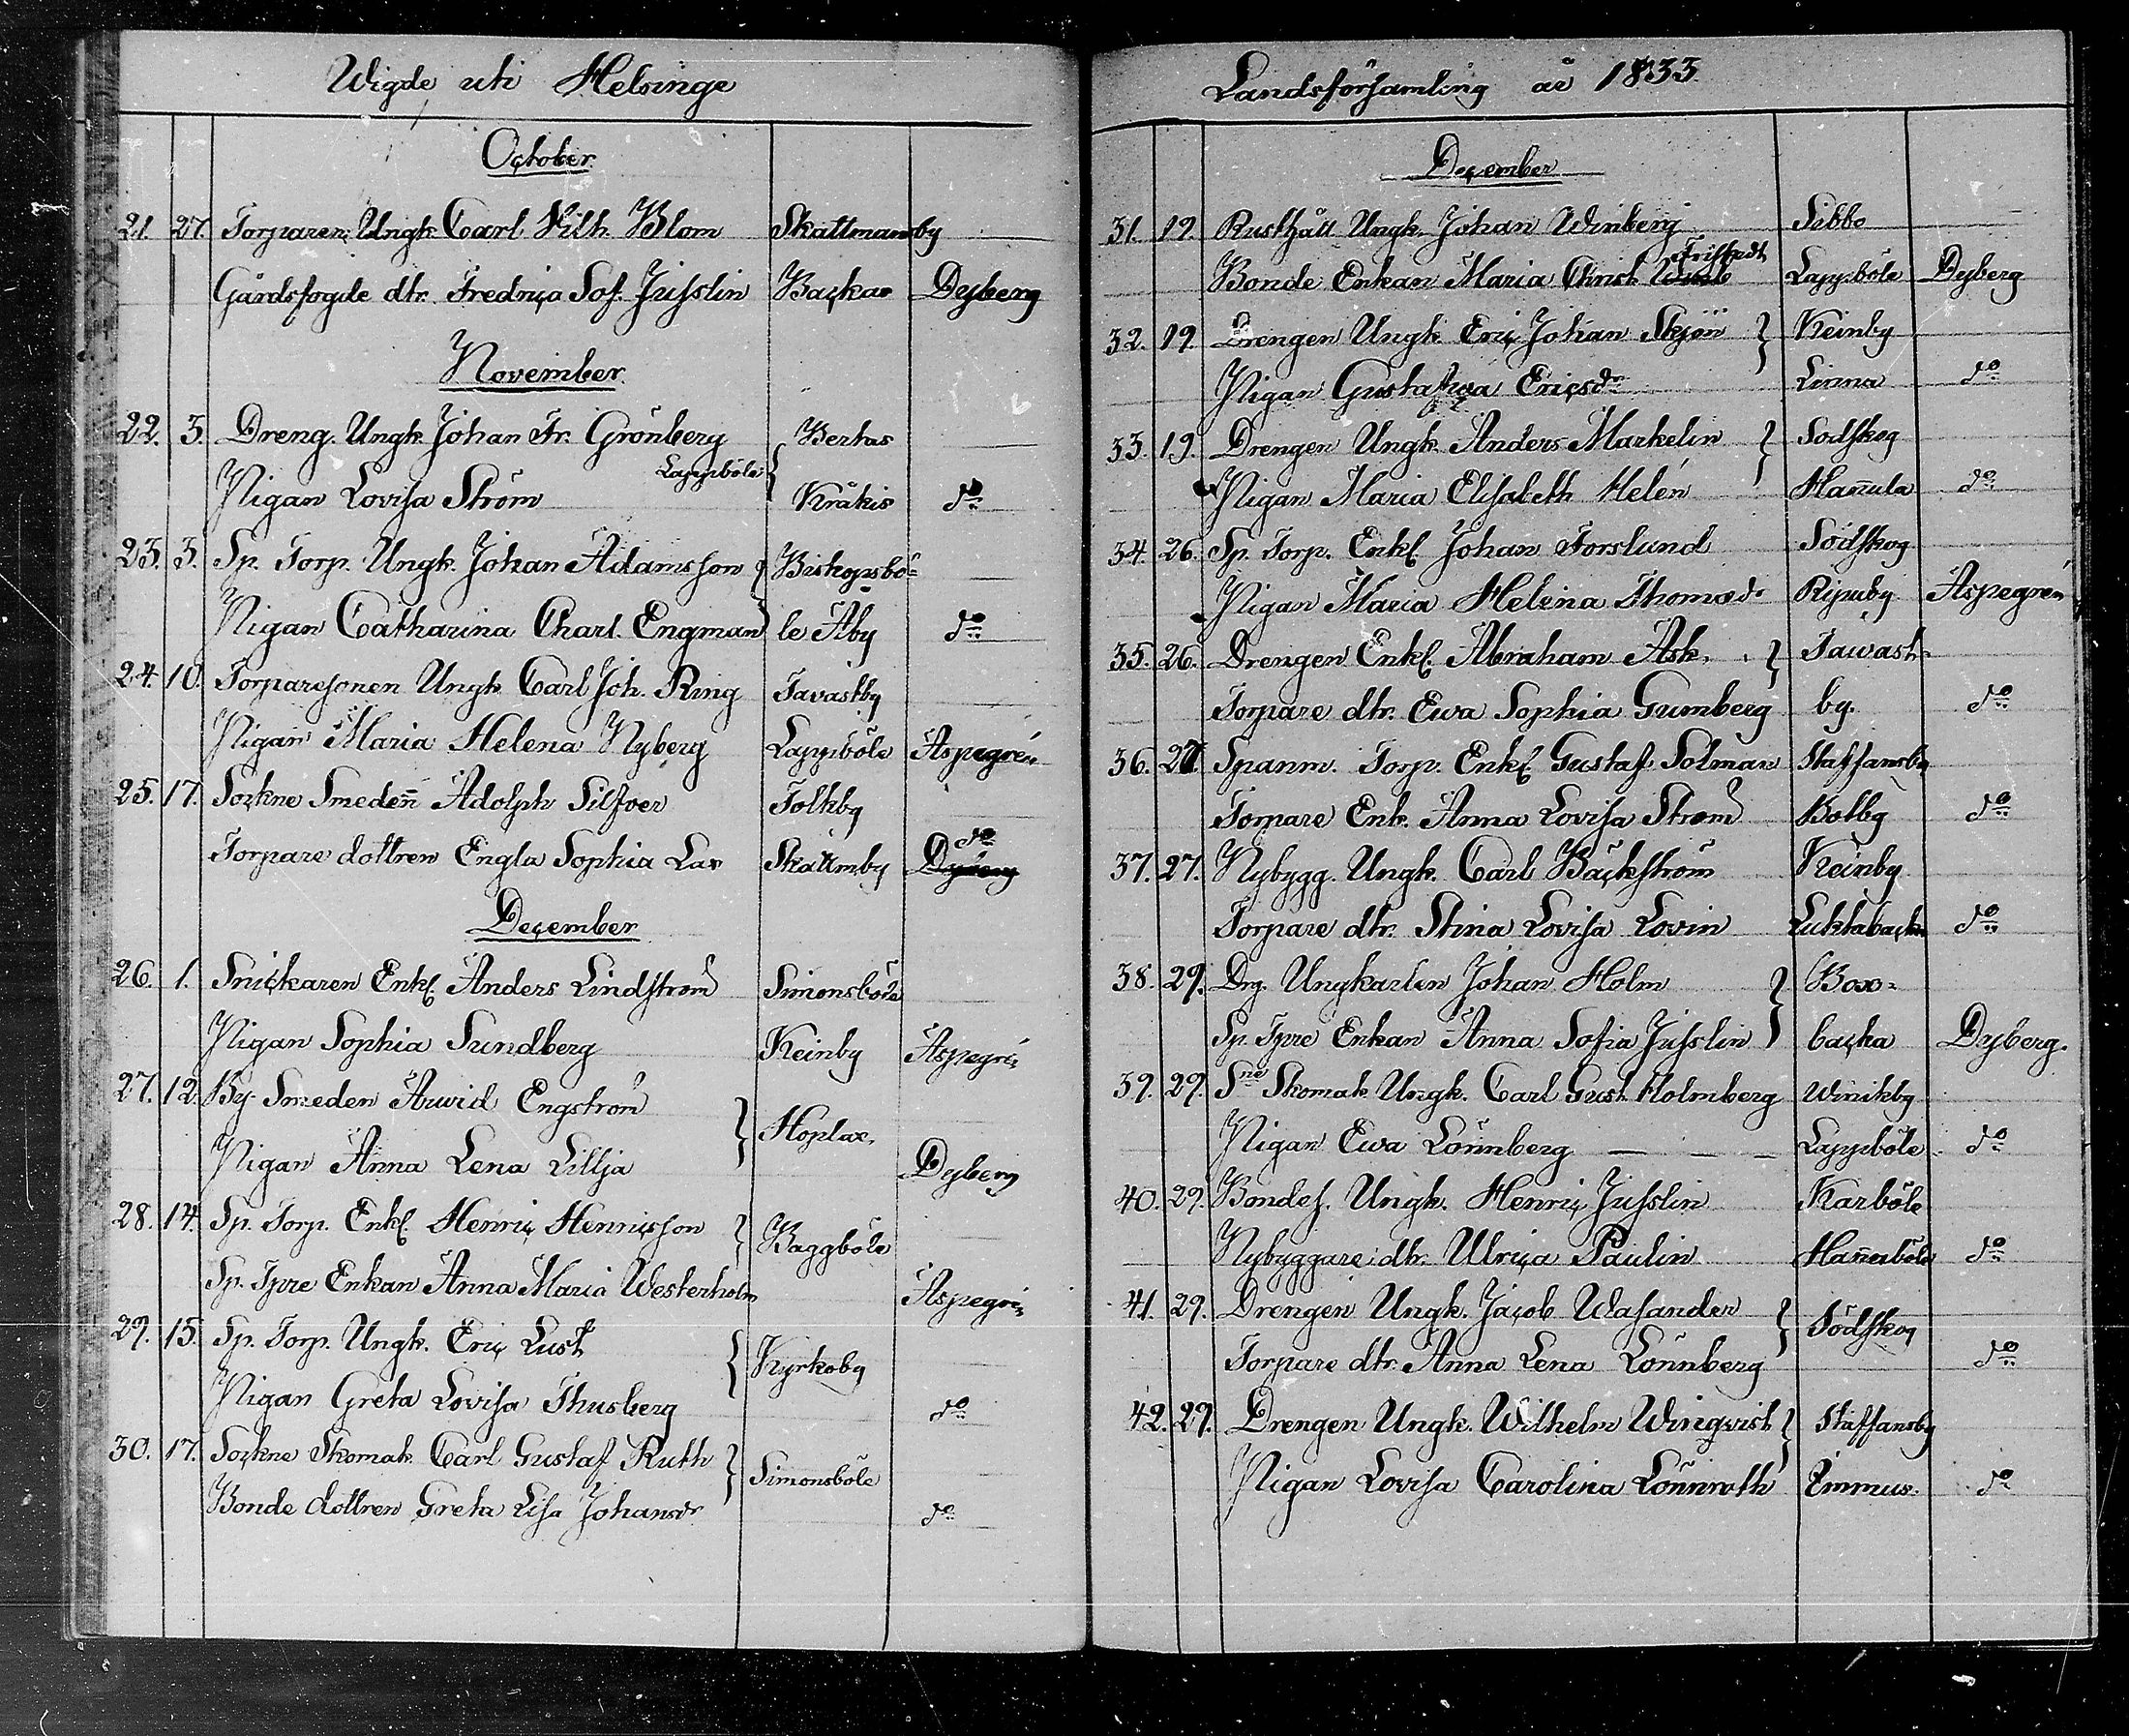 Wigde uti Helsinge
October
21. 27. Torparen Ungk. Carl Vilh. Blom Skattmanby
Gårdsfogde dtr. Fredrica Sof. Jusslin Backas Dyberg
November
22. 3. Dreng. Ungk. Johan Fr. Grönberg Bertas
Lappböle
Pigan Lovisa Ström Kråkis do
23. 3. Sp. Torp. Ungk. Johan Adamsson Biskopsbö=
Pigan Catharina Charl. Engman le Åby do
24. 10. Torparesonen Ungk. Carl Joh. Ring Tavastby
Pigan Maria Helena Nyberg Lappböle Aspegrén
25. 17. Sockne Smeden Adolph Silfver Tolkby
do
Torpare dottren Engla Sophia Lax Skattmby Dyberg
December
26. 1. Snickaren Enkl. Anders Lindström Simonsböle
Pigan Sophia Sundberg Keinby Aspegré
27. 12. By Smeden Arwid Engström
Hoplax.
Pigan Anna Lena Lillja Dyberg
28. 14. Sp. Torp. Enkl. Henric Henricsson Baggböle
Sp. Tpre Enkan Anna Maria Westerholm Aspegré
29. 15. Sp. Torp. Ungk. Eric Lust Kyrkoby
Pigan Greta Lovisa Thusberg do
30. 17. Sockne Skomak. Carl Gustaf Ruth Simonsböle
Bonde dottren Greta Lisa Johansdr do
Landsförsamling år 1833
December
31. 19. Rusthåll Ungk. Johan Winberg Sibbo
Fristedt
Bonde Enkan Maria Christ. Lappböle Dyberg
32. 19. Drengen Ungk. Eric Johan Skjön Keinby
Pigan Gustafwa Ericsdr Linna do
33. 19. Drengen Ungk. Anders Markelin Sodskog
Pigan Maria Elisabeth Helén Hannula do
34. 26. Sp. Torp. Enkl. Johan Forslund Sodskog
Pigan Maria Helena Thomasdr Ripuby Aspegrén
35. 26. Drengen Enkl. Abraham Ask. Tawast=
Torpare dtr. Ewa Sophia Gumberg by. do
36. 27. Spanm. Torp. Enkl. Gustaf Solman Staffansby
Torpare Enk. Anna Lovisa Ström Botby do
37. 27. Nybygg. Ungk. Carl Bäckström Keinby
Torpare dtr. Stina Lovisa Lovin Luktabacka do
38. 29. Drg. Ungkarlen Johan Holm Boxo=
Sp. Tpre Enkan Anna Sofia Jusslin backa Dyberg.
39. 29. Sne Skomak. Ungk. Carl Gust. Holmberg Winikby
Pigan Ewa Lönnberg Lappböle do
40. 29. Bondes. Ungk. Henric Jusslin Karböle
Nybyggare dtr. Ulrica Paulin Hannusböle do
41. 29. Drengen Ungk. Jacob Wasander Södskog
Torpare dtr. Anna Lena Lönnberg do
42. 29. Drengen Ungk. Wilhelm Winqvist Staffansby
Pigan Lovisa Carolina Lönnroth Immus. do